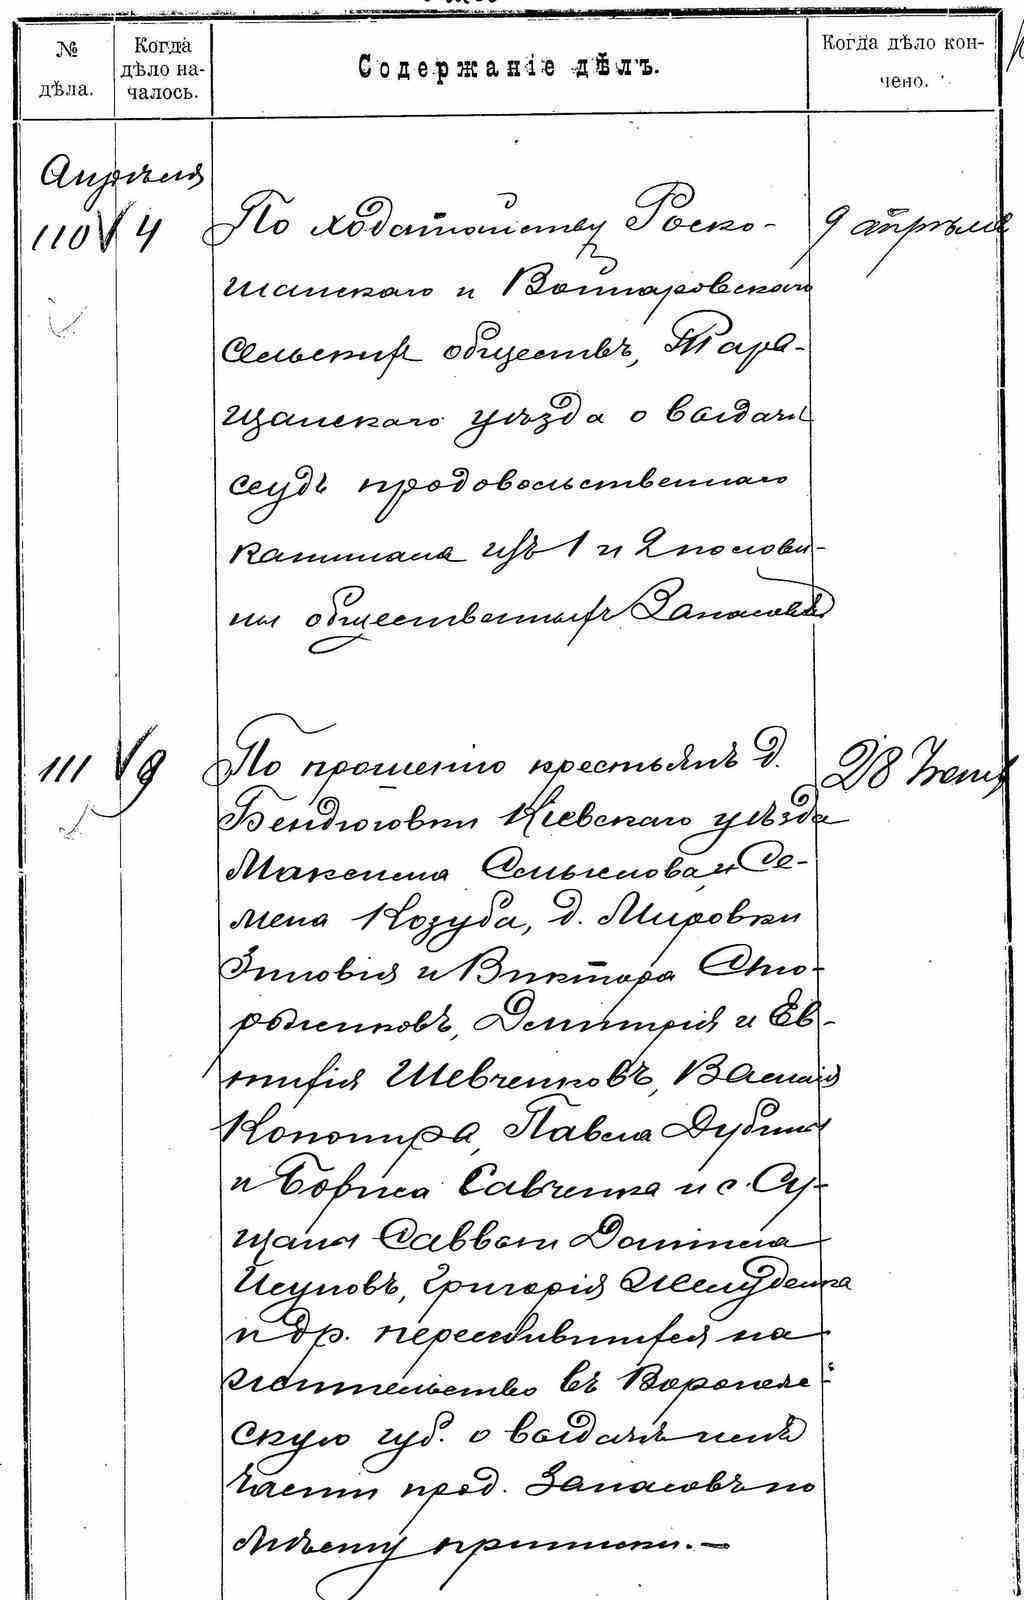 № дѣла.
Когда дѣло на-
чалось.
Содержаніе дѣлъ.
Когда дѣло кон-
чено.
Апрѣля
110 V 4
По ходатайству Роско-
шанскаго и Войнаровскаго
сельскихъ обществъ, Тара-
щанскаго уѣзда о выдачѣ
ссудъ продовольственнаго
капитала изъ 1 и 2 полови-
ны общественныхъ запасовъ
9 апрѣля
111 V 9
По прошенію крестьянъ д.
Бендюговки Кіевскаго уѣзда
Максима и Се-
мена Козуба, д. Мировки
Зиновія и Виктора Сто-
роженковъ, Димитрія и Ев-
тифія Шевченковъ, Василія
Кононира, Павла Дубины
и Бориса Савченка и с. Су-
щаны Саввы и Даніила
Исуповъ, Григорія
и др. переселившихся на
жительство въ Воронеж-
скую губ. о выдачѣ имъ
части прод. запасовъ по
мѣсту приписки. —
28 Іюня